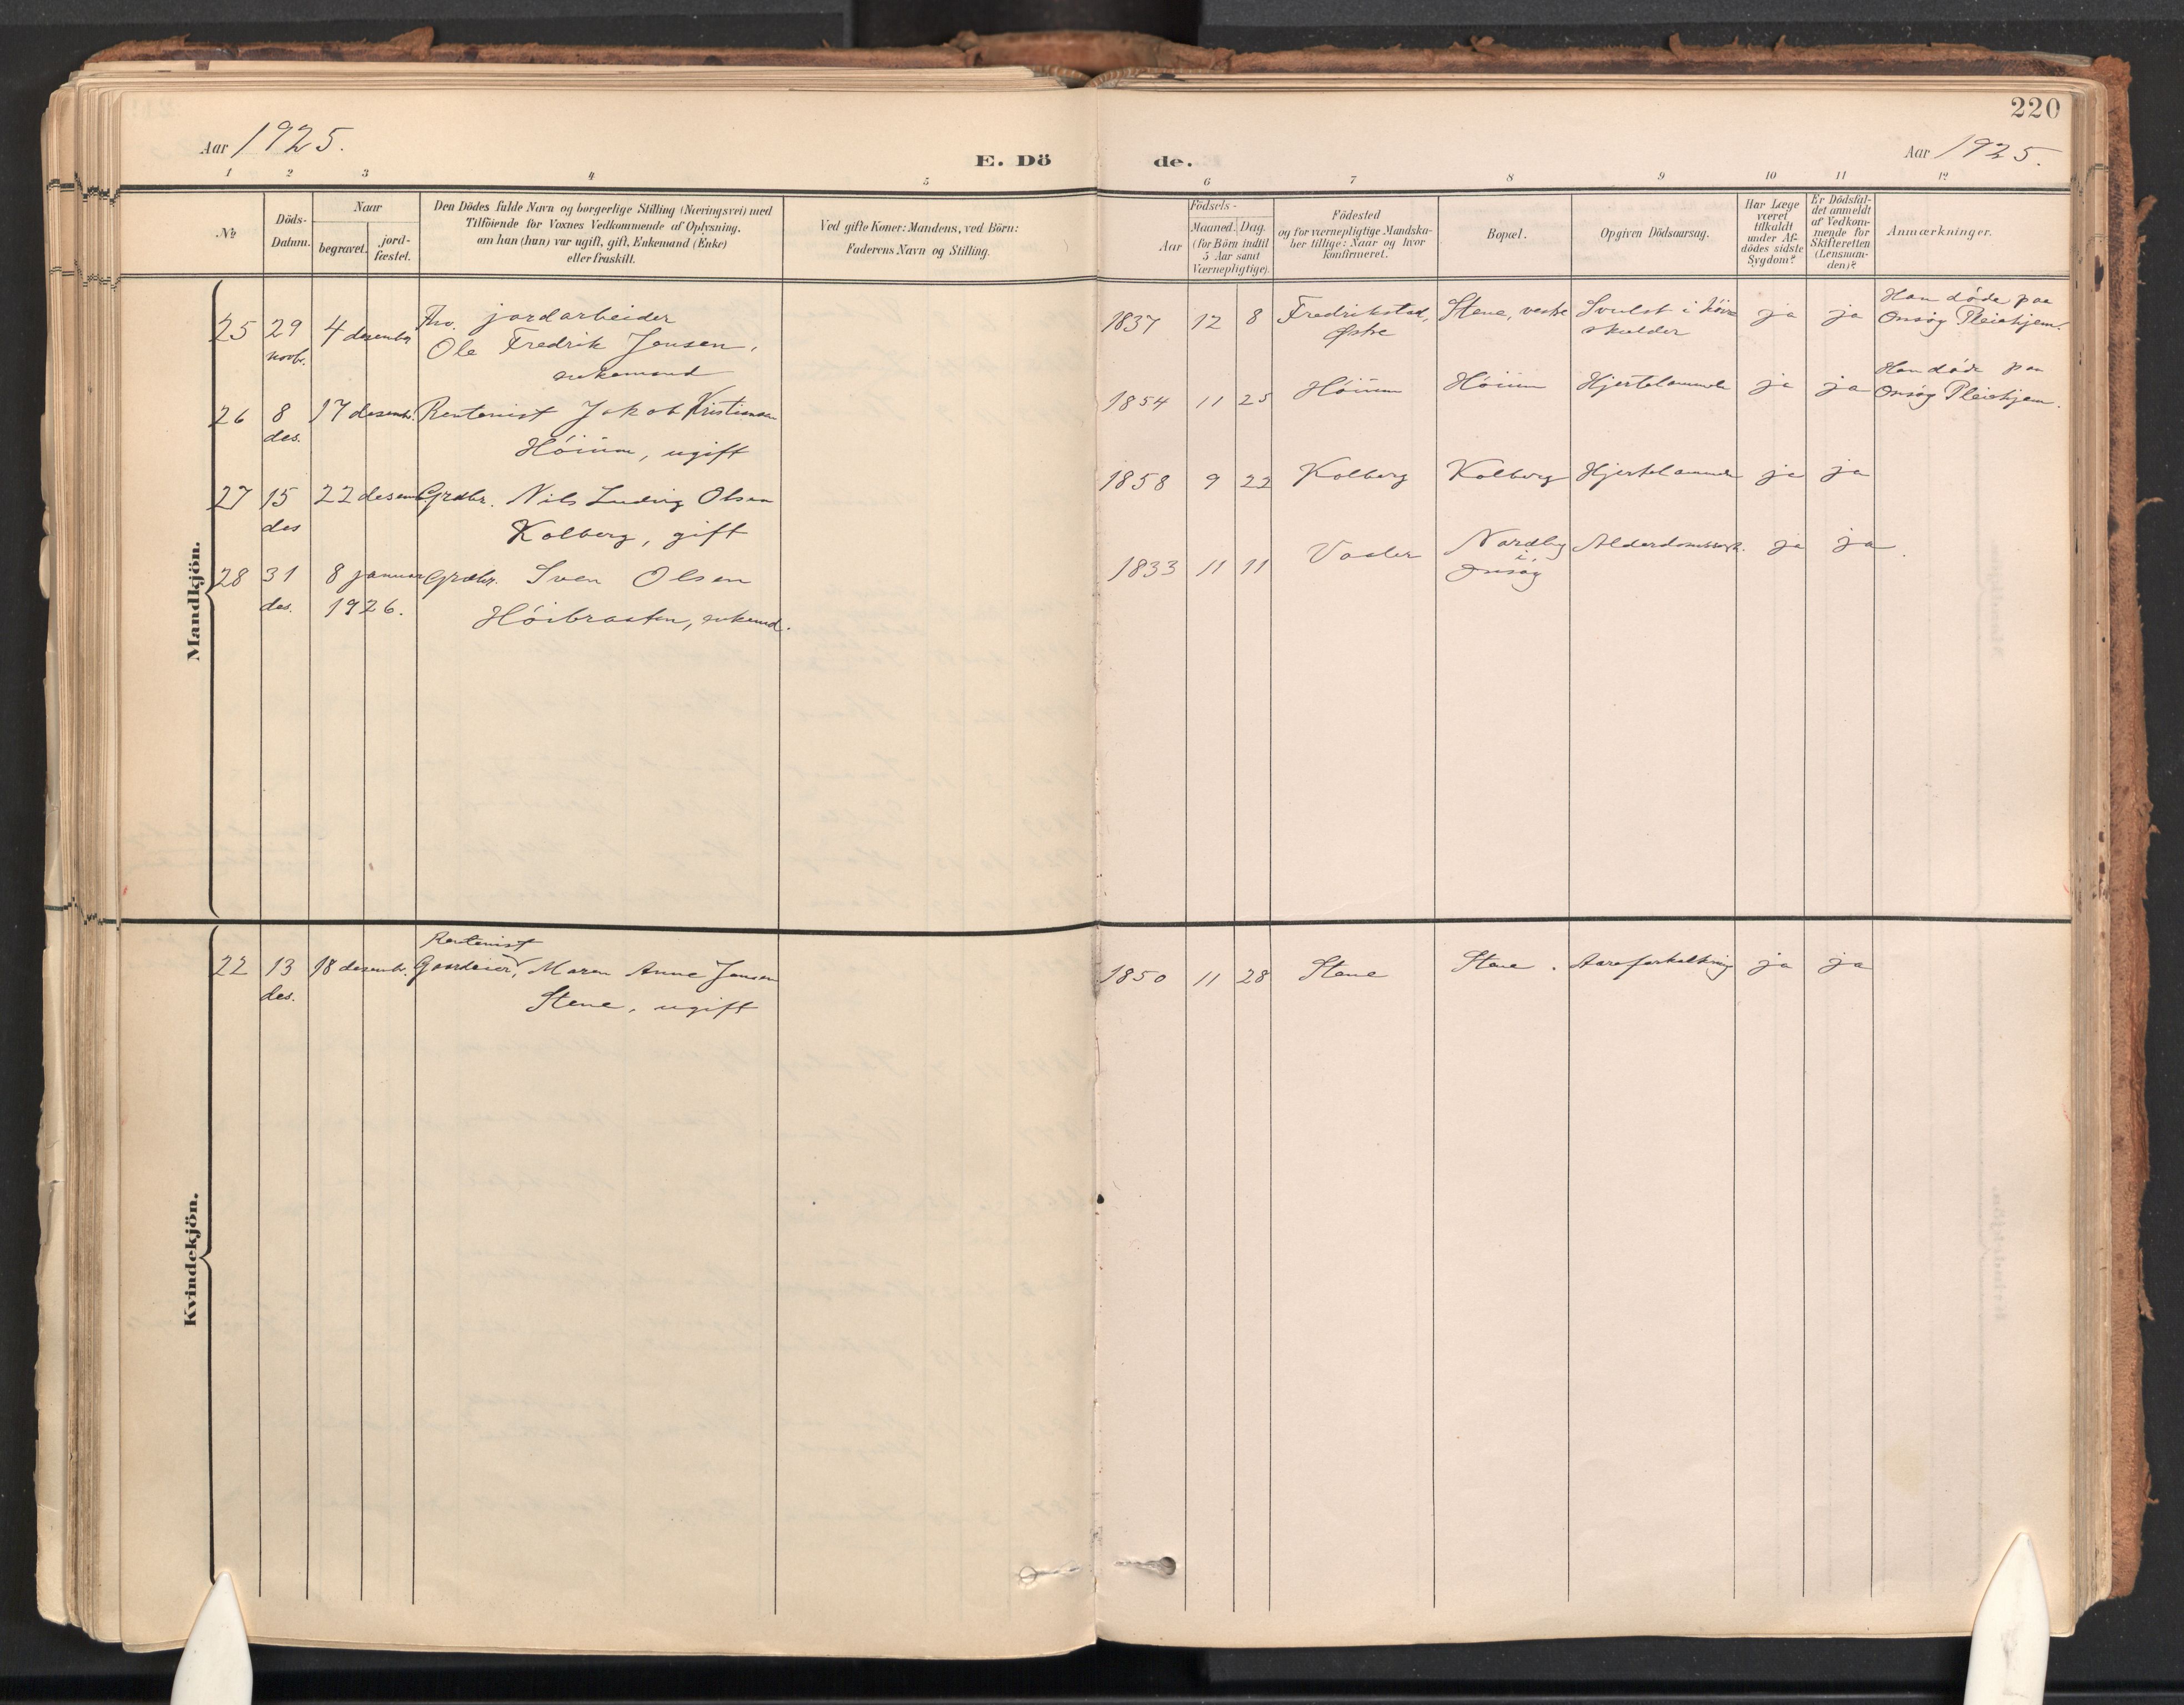 220
Aar 1925.
E. Dö de.
Aar 1925.
1 2 3 4 5 6 7 8 9 10 11 12
No
Döds-
Datum.
Naar
begravet.
jord-
fæstet.
Den Dödes fulde Navn og borgerlige Stilling (Næringsvei) med
Tilföiende for Voxnes Vedkommende af Oplysning,
om han (hun) var ugift, gift, Enkemand (Enke)
eller fraskilt.
Ved gifte Koner: Mandens, ved Börn:
Faderens Navn og Stilling.
Födsels-
Aar
Maaned. Dag.
(for Börn indtil
5 Aar samt
Værnepligtige).
Födested
og for værnepligtige Mandska-
ber tillige: Naar og hvor
konfirmeret.
Bopæl.
Opgiven Dödsaarsag.
Har Læge
været
tilkaldt
under Af-
dödes sidste
Sygdom?
Er Dödsfal-
det anmeldt
af Vedkom-
mende for
Skifteretten
(Lensman-
den)?
Anmærkninger.
Mandkjön.
25 29 novbr. 4 desember
jordarbeider
Ole Fredrik Jensen,
enkemand
1837 12 8 Fredrikstad, Østre
Stene, vestre
Svulst i høire
skulder
ja ja
Han døde paa
Onsøy Pleiehjem.
26 8 des. 17 desembr. Rentenist Jakob Kristiansen
Høium, ugift
1854 11 25 Høium Høium Hjertelammelse ja ja
Han døde paa
Onsøy Pleiehjem.
27 15 des 22 desemb Grdbr. Nils Ludvig Olsen
Kolberg, gift
1858 9 22 Kolberg Kolberg Hjertelammelse ja ja
28 31 des. 8 januar 1926. Grdbr. Sven Olsen
Høibraaten, enkemd.
1833 11 11 Vaaler Nordby
i
Onsøy
Alderdomssvk. ja ja.
Kvindekjön.
Rentenist
22 13 des. 18 desemb. Gaardeier, Maren Anne Jensen
Stene, ugift
1850 11 28 Stene Stene. Aareforkalkning ja ja